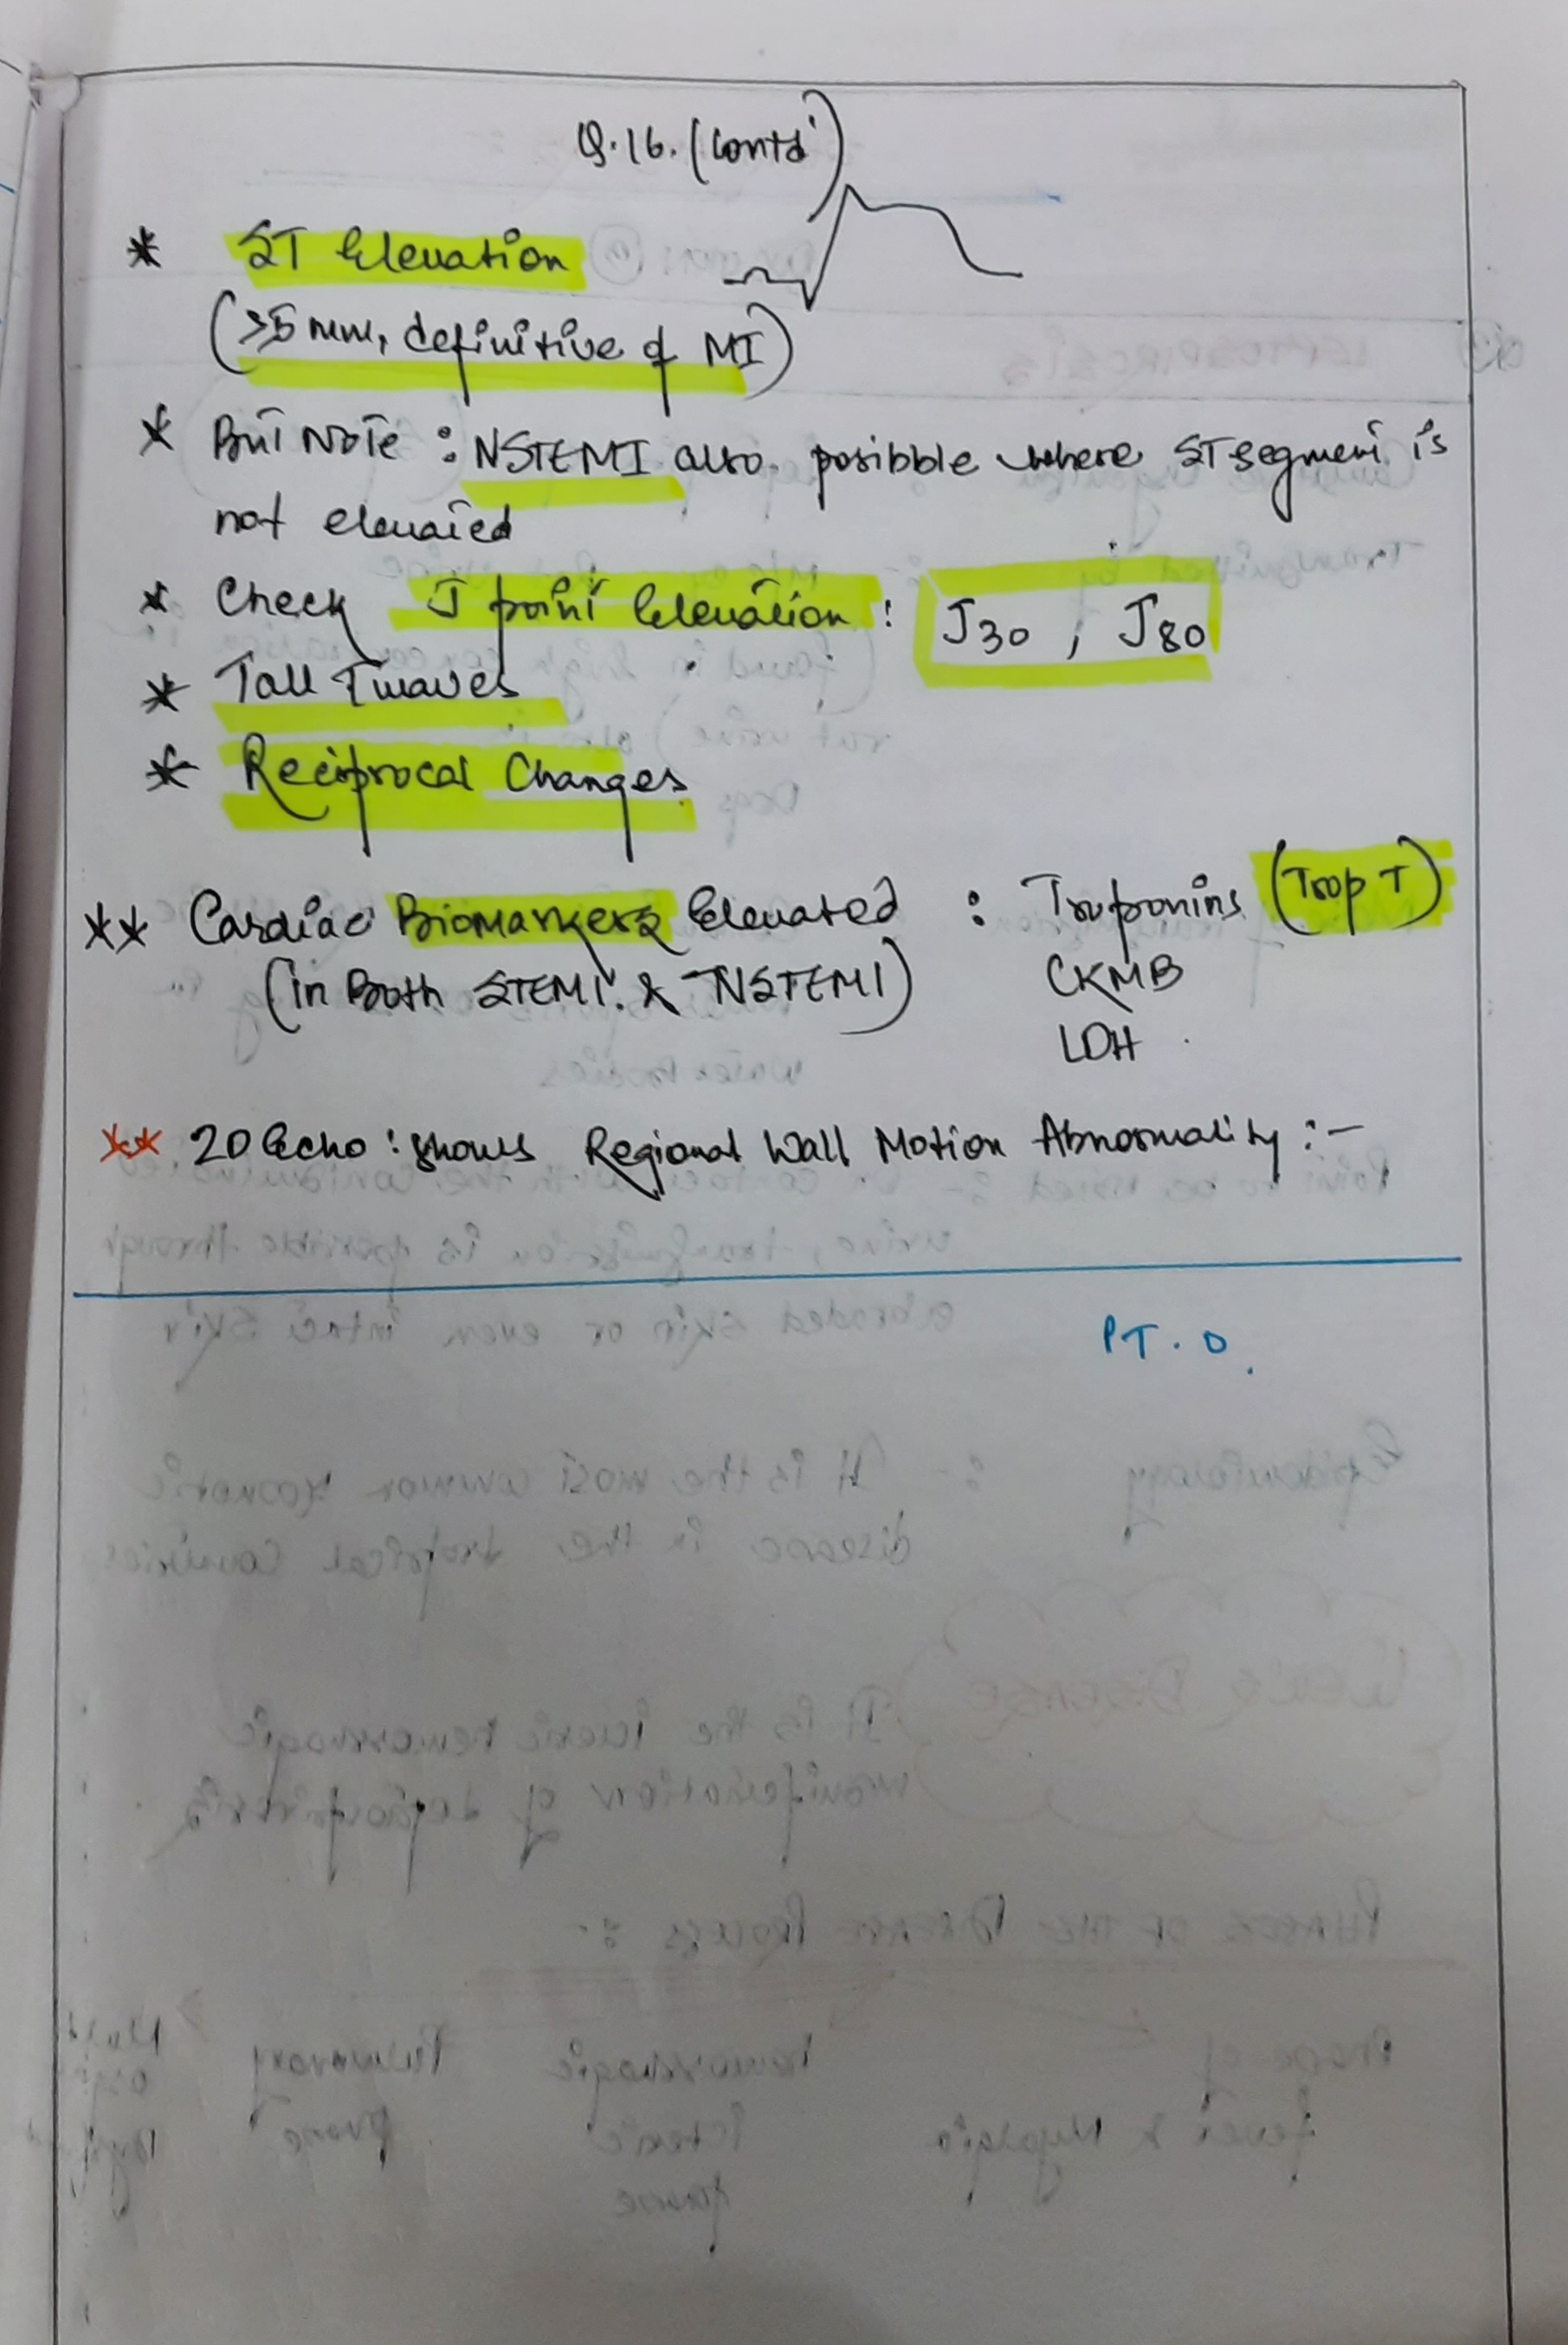 Q.16. (Contd')
* ST Elevation
(>5 mm, definitive of MI)
* But Note : NSTEMI also posibble where ST segment is
not elevated
* Check J point Elevation : J30 , J80
* Tall T waves
* Reciprocal Changes
** Cardiac Biomarkers Elevated : Troponins (Trop T)
(in Both STEMI & NSTEMI) CKMB
LDH
** 2D Echo : shows Regional Wall Motion Abnormality :-
P.T.O.